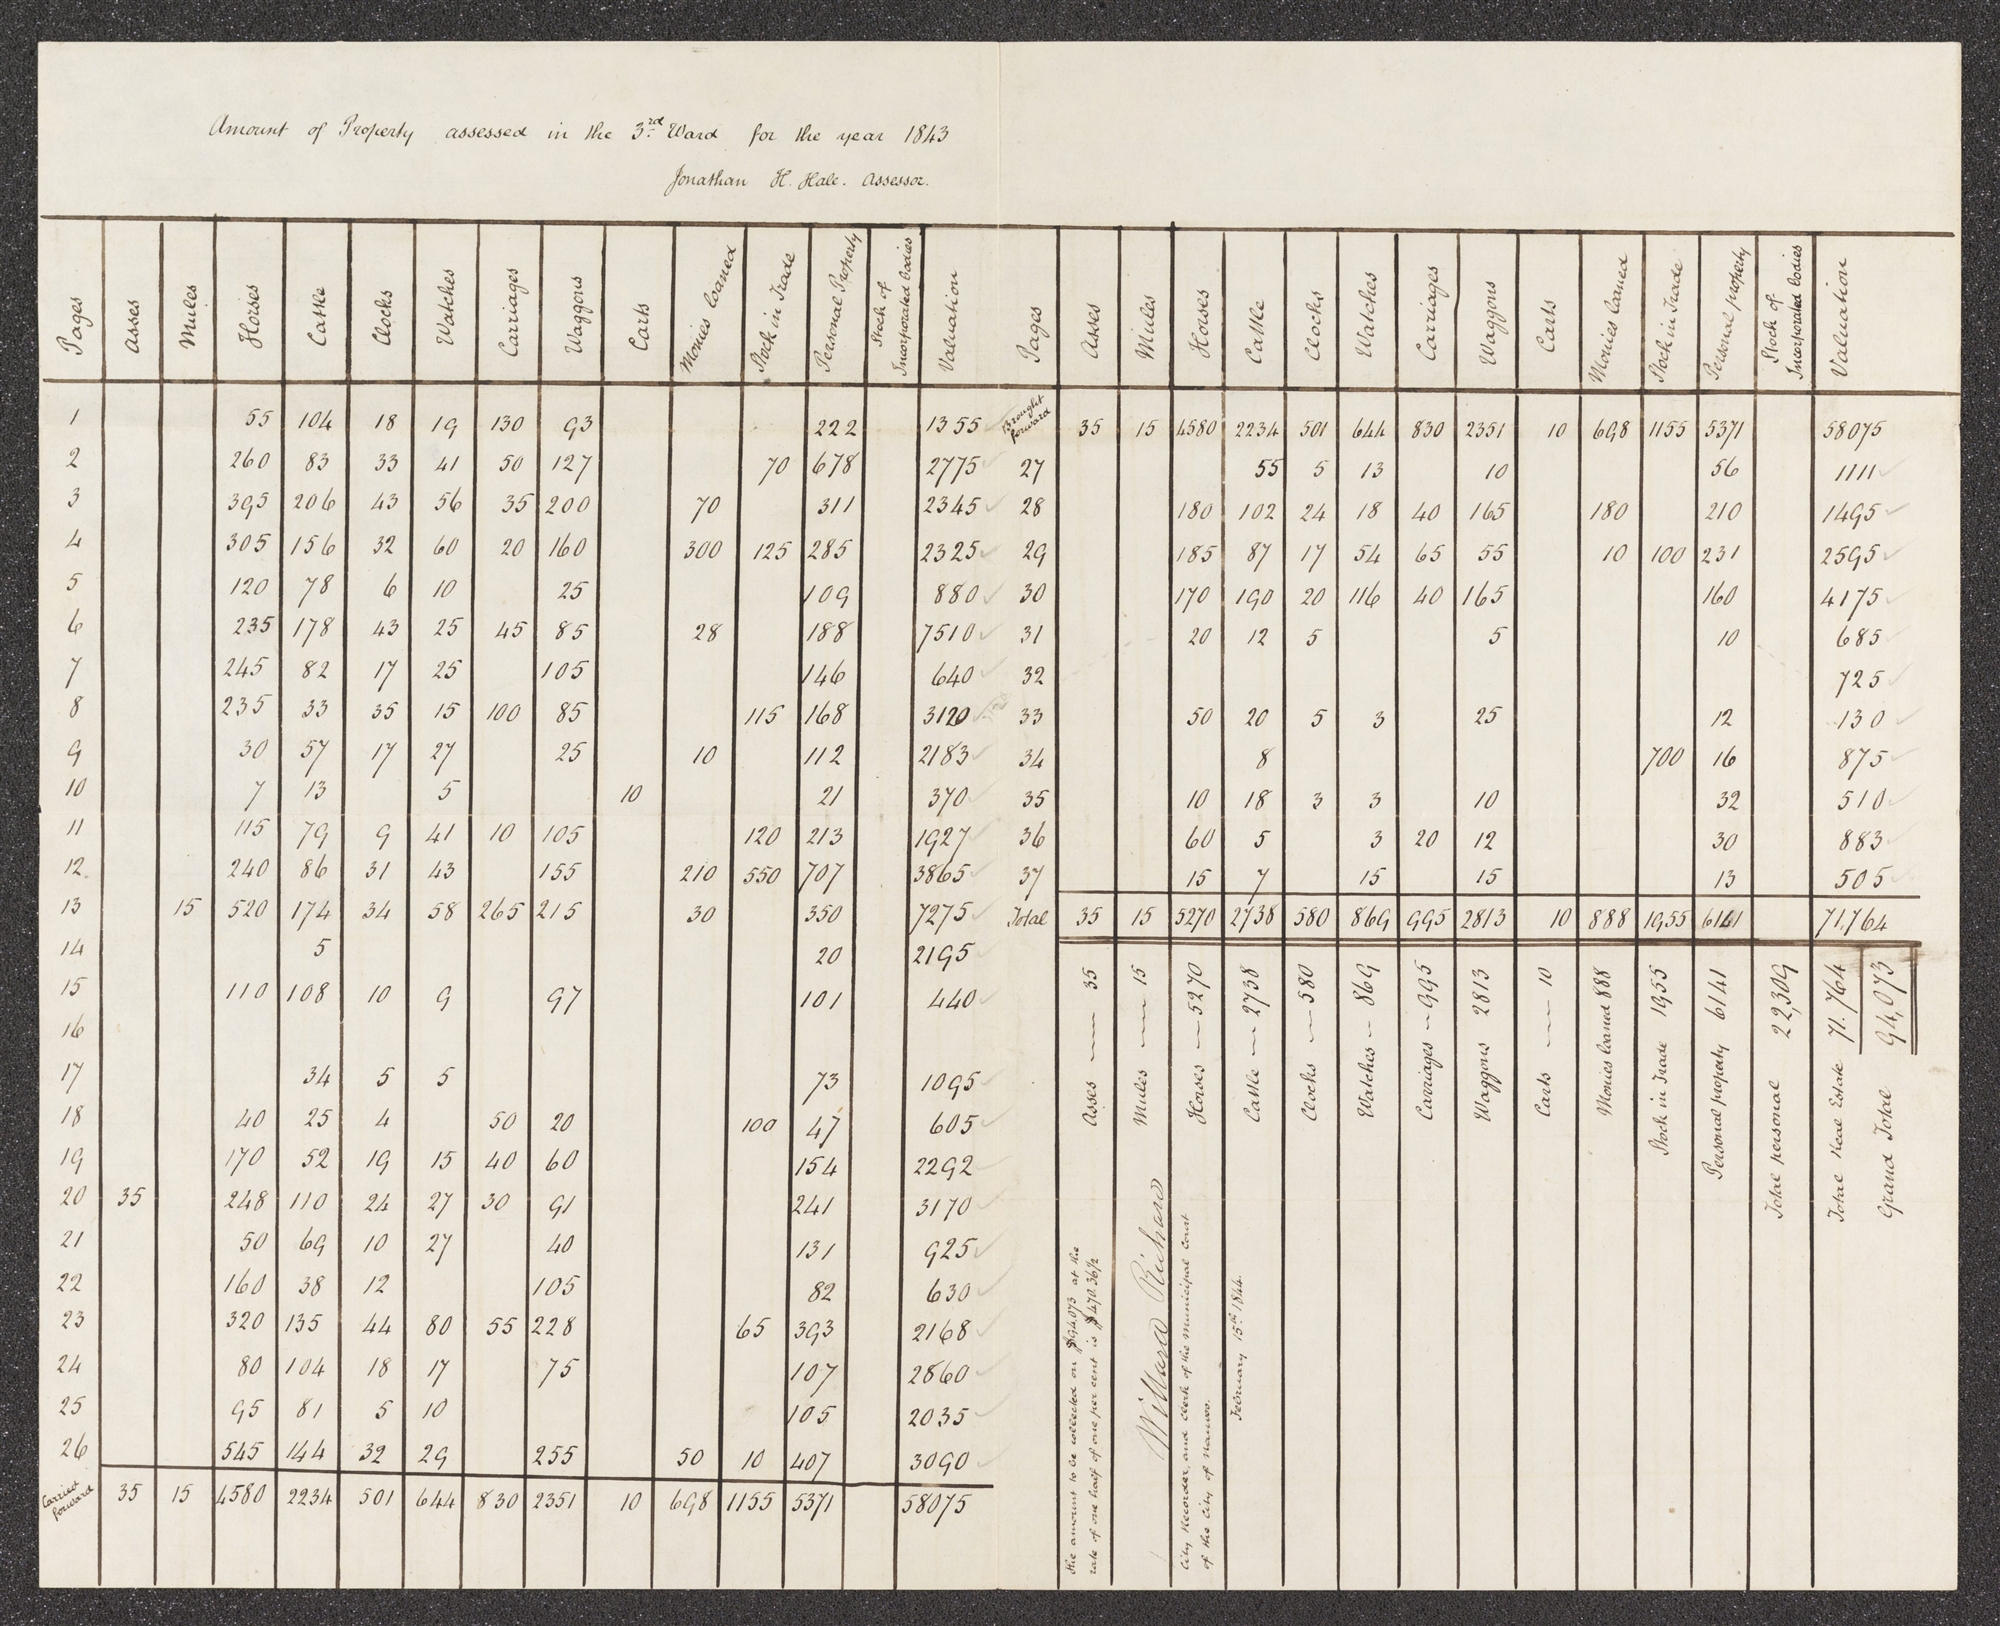 Amount of Property assessed in the 3rd Ward for the year 1843
Jonathan H. Hale. Assessor.
Pages Asses Mules Horses Cattle Clocks Watches Carriages Waggons Carts Monies loaned Stock in Trade Personal Property Stock of Incorporated bodies Valuation
1 55 104 18 19 130 93 222 1355
2 260 83 33 41 50 127 70 678 2775
3 395 206 43 56 35 200 70 311 2345
4 305 156 32 60 20 160 300 125 285 2325
5 120 78 6 10 25 109 880
6 235 178 43 25 45 85 28 188 7510
7 245 82 17 25 105 146 640
8 235 33 35 15 100 85 115 168 3120
9 30 57 17 27 25 10 112 2183
10 7 13 5 10 21 370
11 115 79 9 41 10 105 120 213 1927
12 240 86 31 43 155 210 550 707 3865
13 15 520 174 34 58 265 215 30 350 7275
14 5 20 2195
15 110 108 10 9 97 101 440
16
17 34 5 5 73 1095
18 40 25 4 50 20 100 47 605
19 170 52 19 15 40 60 154 2292
20 35 248 110 24 27 30 91 241 3170
21 50 69 10 27 40 131 925
22 160 38 12 105 82 630
23 320 135 44 80 55 228 65 393 2168
24 80 104 18 17 75 107 2860
25 95 81 5 10 105 2035
26 545 144 32 29 255 50 10 407 3090
Carried forward 35 15 4580 2234 501 644 830 2351 10 698 1155 5371 58075
Pages Asses Mules Horses Cattle Clocks Watches Carriages Waggons Carts Monies loaned Stock in Trade Personal property Stock of Incorporated bodies Valuation
Brought forward 35 15 4580 2234 501 644 830 2351 10 698 1155 5371 58075
27 55 5 13 10 56 1111
28 180 102 24 18 40 165 180 210 1495
29 185 87 17 54 65 55 10 100 231 2595
30 170 190 20 116 40 165 160 4175
31 20 12 5 5 10 685
32 725
33 50 20 5 3 25 12 130
34 8 700 16 875
35 10 18 3 3 10 32 510
36 60 5 3 20 12 30 883
37 15 7 15 15 13 505
Total 35 15 5270 2738 580 869 995 2813 10 888 1955 6141 71,764
Asses 35
Mules 15
Horses 5270
Cattle 2738
Clocks 580
Watches 869
Carriages 995
Waggons 2813
Carts 10
Monies loaned 888
Stock in Trade 1955
Personal property 6141
Total personal 22,309
Total Real Estate 71.764
Grand Total 94,073
The amount to be collected on $94,073 at the
rate of one half of one per cent is $470.36½
Willard Richards
City Recorder, and clerk of the Municipal Court
of the City of Nauvoo.
February 15th 1844.